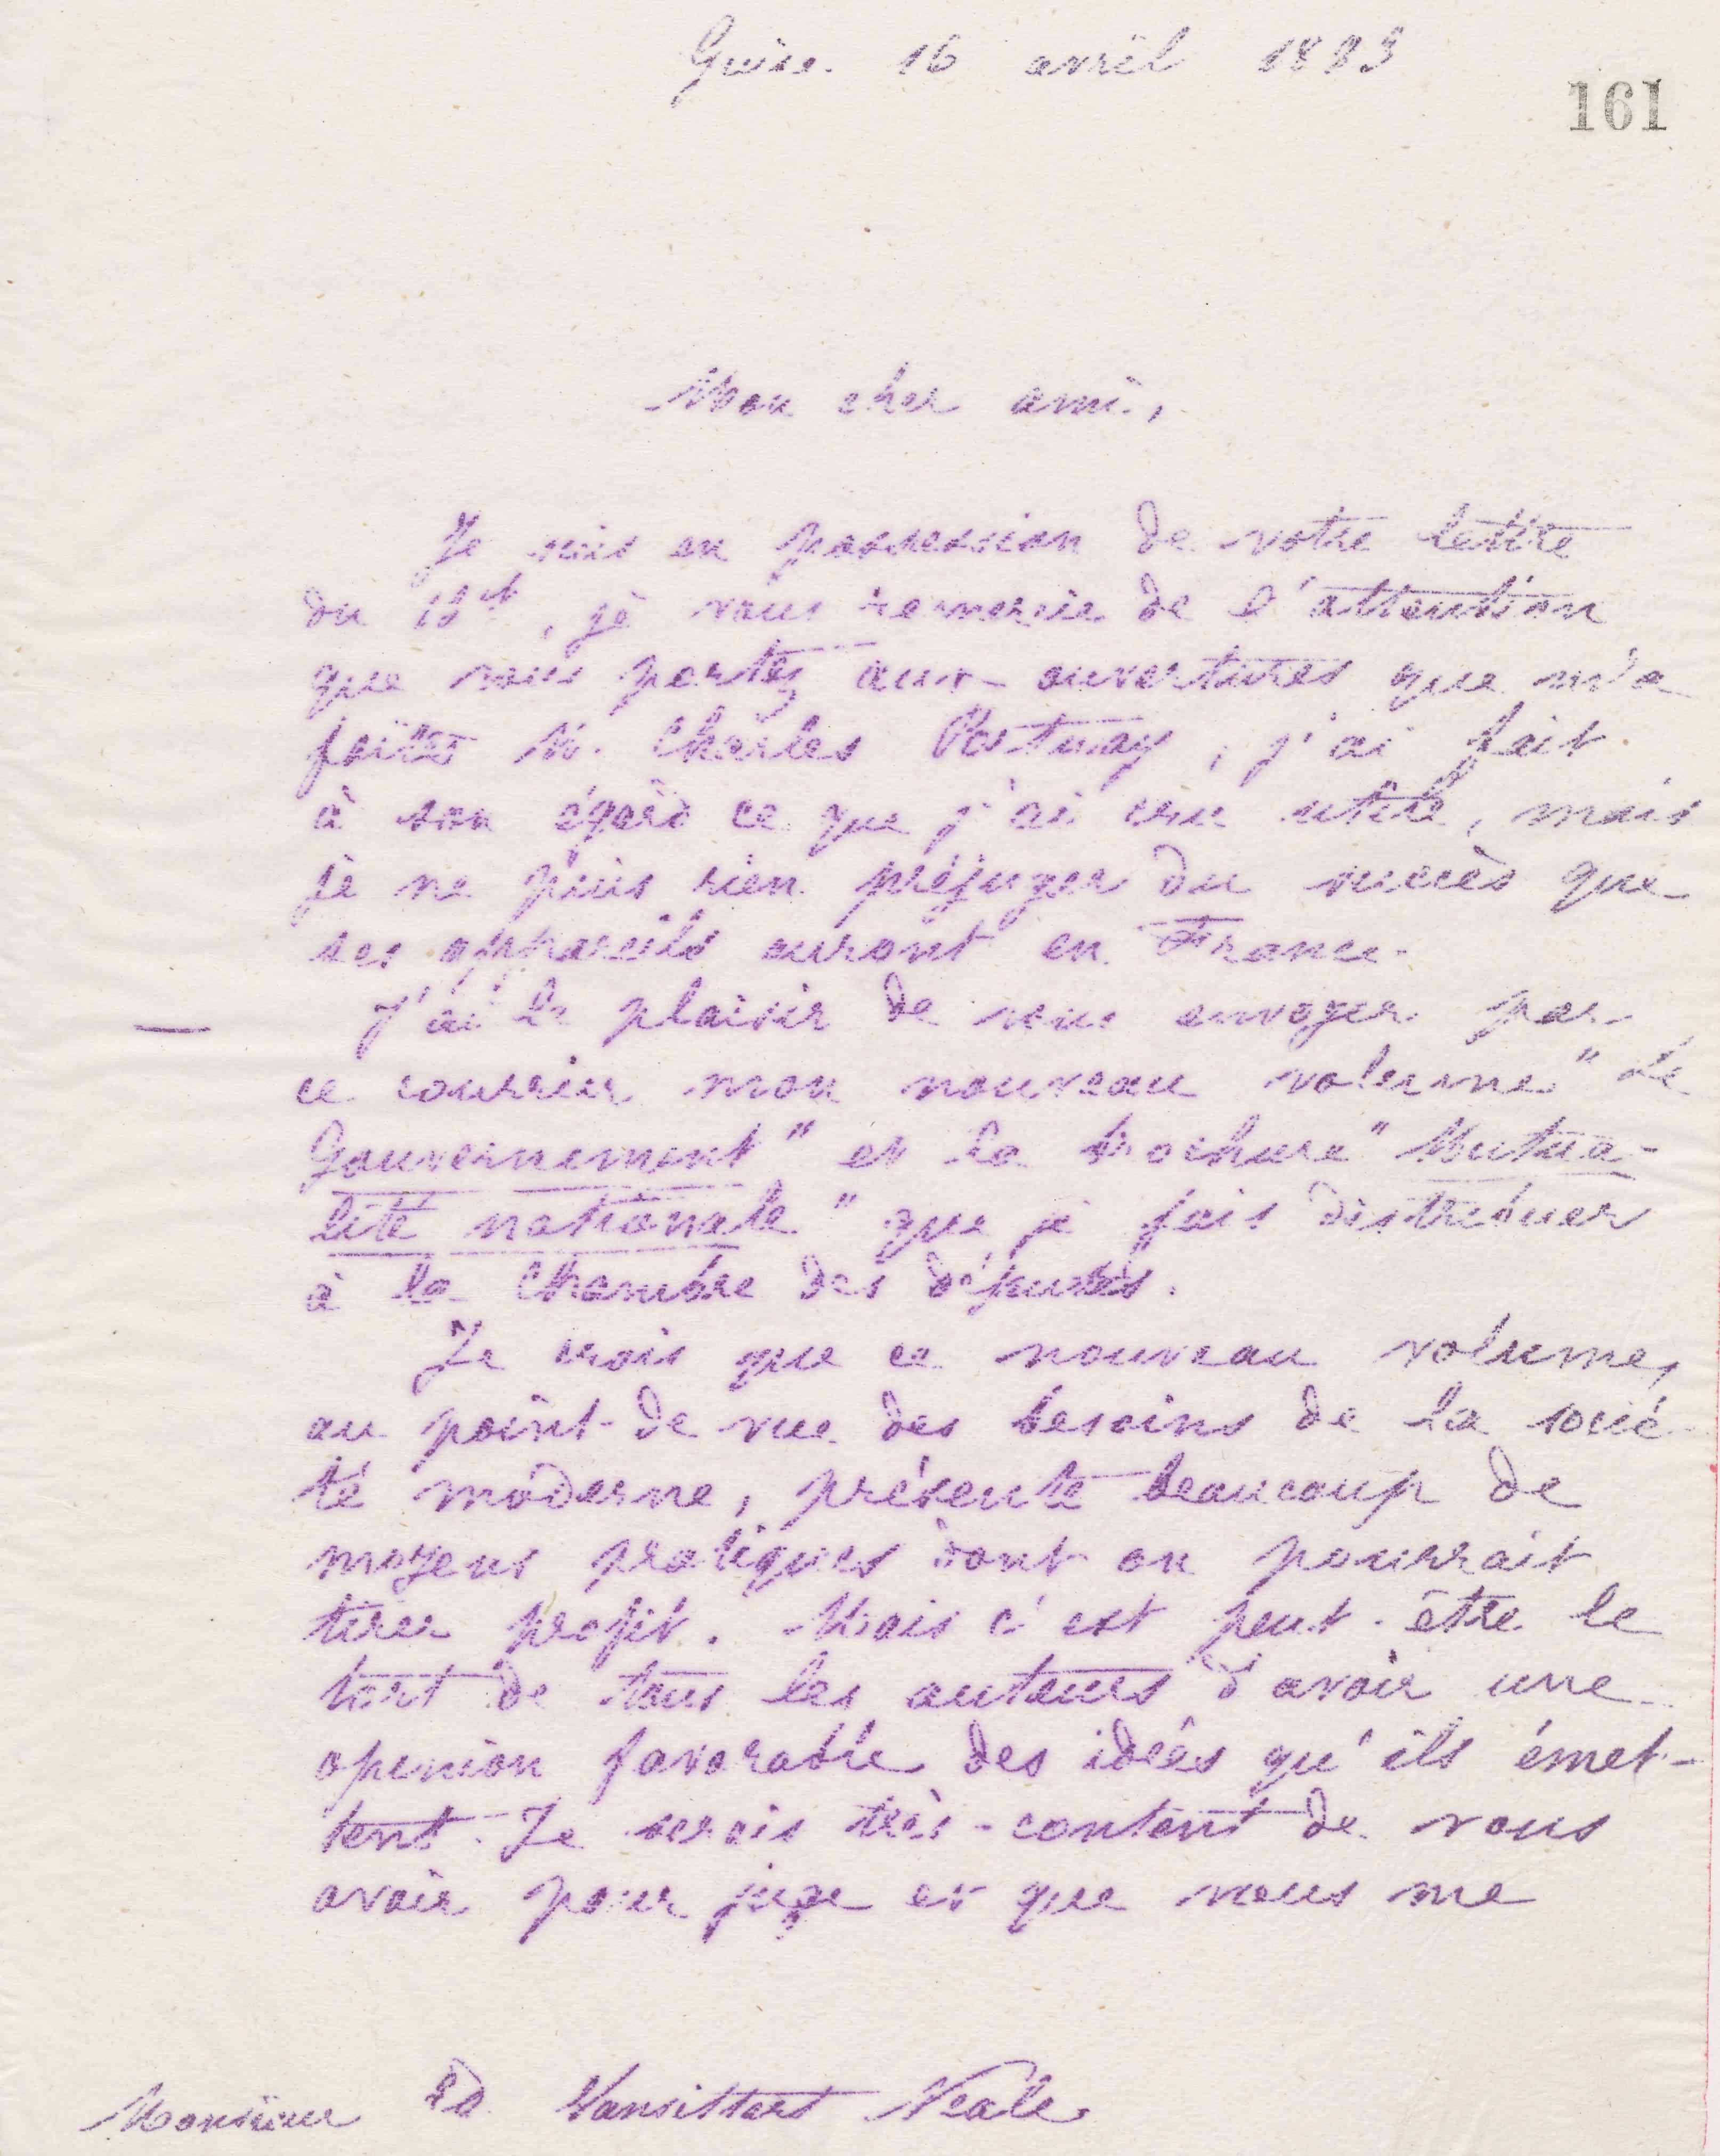 Guise. 16 avril 1883
161
Mon cher ami,
Je suis en possession de votre lettre
du 13 ct, je vous remercie de l'attention
que vous portez aux ouvertures que m'a
faites M. Charles Portway, j'ai fait
à son égard ce que j'ai cru utile, mais
je ne puis rien préjuger du succès que
ses appareils auront en France.
J'ai le plaisir de vous envoyer par
ce courrier mon nouveau volume "Le
Gouvernement" et la brochure "Mutua-
lité nationale" que je fais distribuer
à la Chambre des députés.
Je crois que ce nouveau volume,
au point de vue des besoins de la socié-
té moderne, présente beaucoup de
moyens pratiques dont on pourrait
tirer profit. Mais c'est peut-être le
tort de tous les auteurs d'avoir une
opinion favorable des idées qu'ils émet-
tent. Je serais très-content de vous
avoir pour juge et que vous me
Monsieur Ed Vansittart Neale